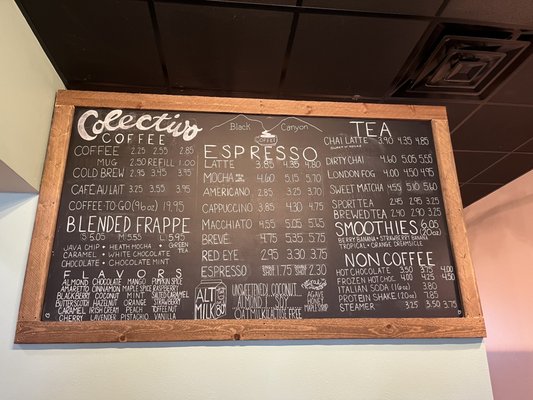 Colectivo
COFFEE
COFFEE 2.25 2.55 2.95
MUG 2.50 REFILL 1.00
COLD BREW 2.95 3.45 3.95
CAFÉ AU LAIT 3.25 3.55 3.95
COFFEE-TO-GO (96oz) 19.95
BLENDED FRAPPE
S: 5.05 M: 5.55 L: 5.95
JAVA CHIP • HEATH MOCHA • GREEN TEA
CARAMEL • WHITE CHOCOLATE
CHOCOLATE • CHOCOLATE MINT
FLAVORS
ALMOND CHOCOLATE MANGO PUMPKIN SPICE
AMARETTO CINNAMON MAPLE SPICE RASPBERRY
BLACKBERRY COCONUT MINT SALTED CARAMEL
BUTTERSCOTCH HAZELNUT ORANGE STRAWBERRY
CARAMEL IRISH CREAM PEACH TOFFEE NUT
CHERRY LAVENDER PISTACHIO VANILLA
Black Canyon
COFFEE
ESPRESSO
LATTE 3.85 4.35 4.80
MOCHA 4.60 5.15 5.70
AMERICANO 2.85 3.30 3.70
CAPPUCCINO 3.85 4.30 4.75
MACCHIATO 4.55 5.05 5.65
BREVÉ 4.75 5.35 5.75
RED EYE 2.95 3.30 3.75
ESPRESSO 1.75 2.30
ALT MILK
UNSWEETENED COCONUT
ALMOND SOY
OATMILK LACTOSE FREE
AGAVE
HONEY
MAPLE SYRUP
TEA
CHAI LATTE 3.90 4.35 4.85
DIRTY CHAI 4.60 5.05 5.55
LONDON FOG 4.00 4.50 4.95
SWEET MATCHA 4.55 5.10 5.60
SPORT TEA 2.45 2.95 3.25
BREWED TEA 2.40 2.95 3.25
SMOOTHIES 6.05 (20oz)
BERRY BANANA • STRAWBERRY BANANA
TROPICAL • ORANGE CREAMSICLE
NON COFFEE
HOT CHOCOLATE 3.50 3.75 4.00
FROZEN HOT CHOC 4.00 4.25 4.50
ITALIAN SODA (16oz) 3.80
PROTEIN SHAKE (20oz) 7.85
STEAMER 3.25 3.50 3.75